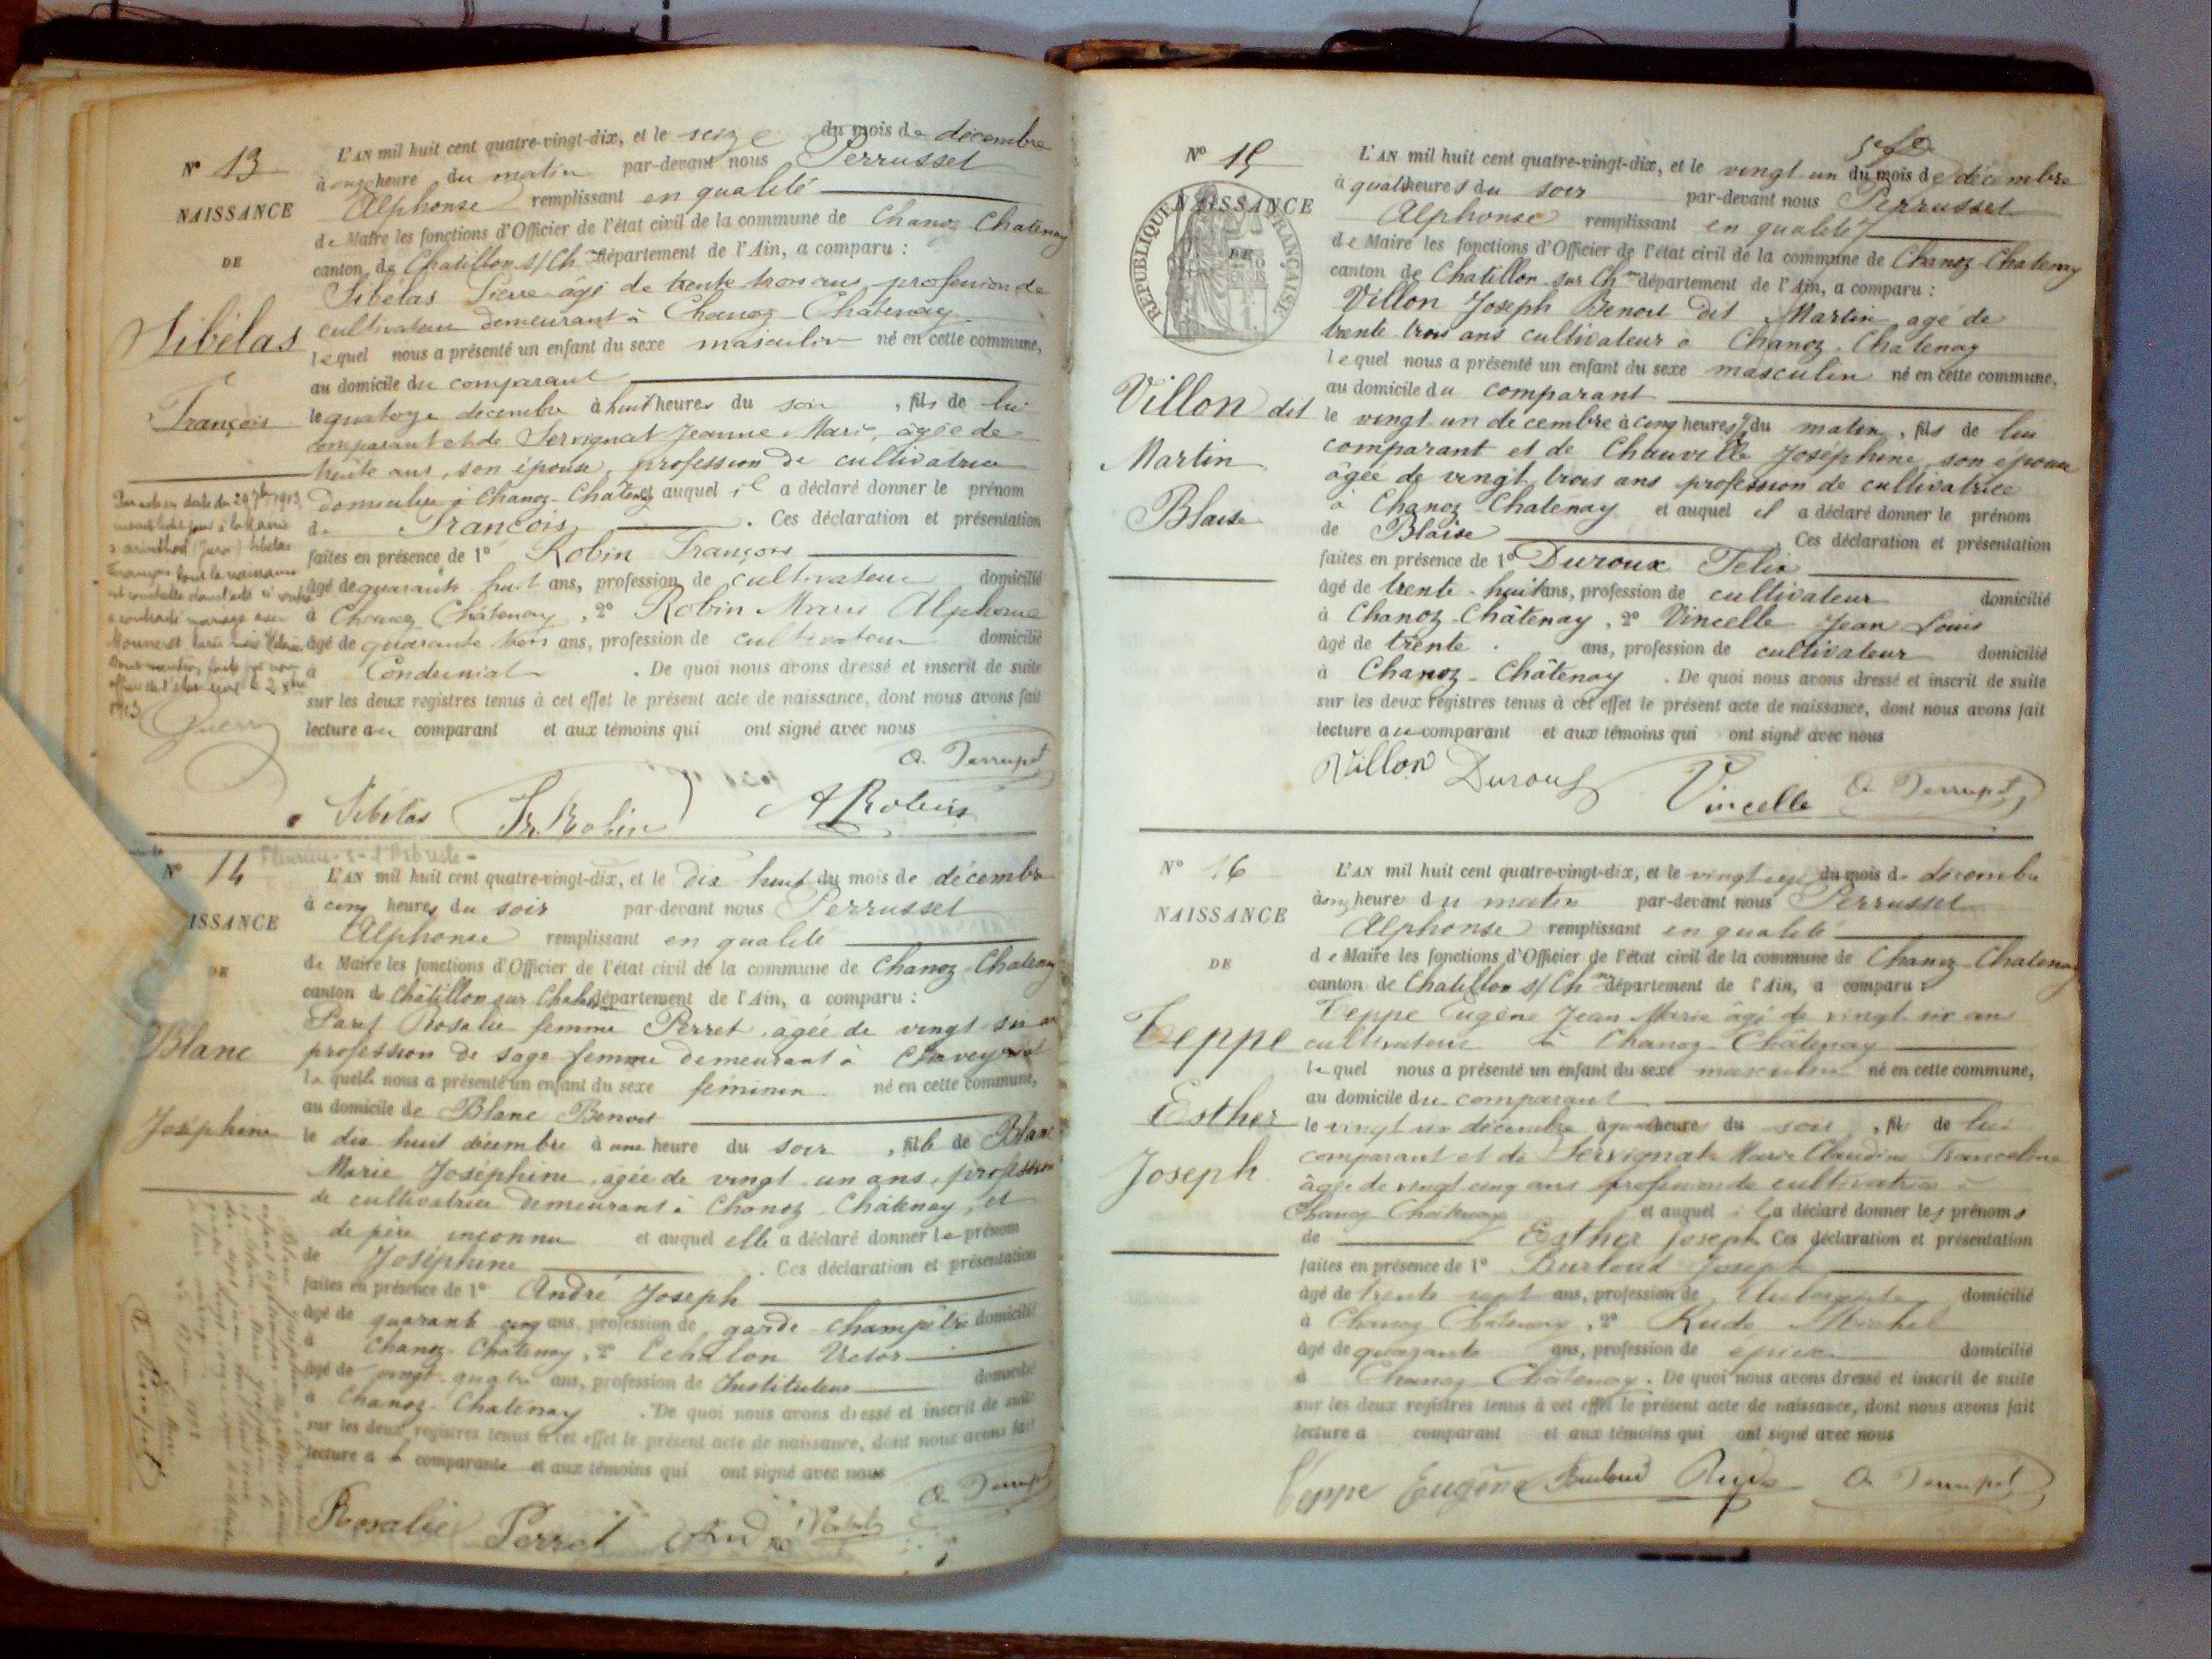 N° 13
NAISSANCE
DE
Sibélas
François
L'AN mil huit cent quatre-vingt-dix, et le seize du mois de décembre
à onze heure du matin par-devant nous Perrusset
Alphonse remplissant en qualité
de Maire les fonctions d'Officier de l'état civil de la commune de Chanoz Chatenay
canton de Chatillon s/ Ch^ne département de l'Ain, a comparu :
Sibélas Pierre âgé de trente trois ans profession de
cultivateur demeurant à Chanoz-Châtenay
lequel nous a présenté un enfant du sexe masculin né en cette commune,
au domicile du comparant
le quatorze décembre à huit heures du soir, fils de lui
comparant et de Servignat Jeanne Marie, âgée de
trente ans, son épouse, profession de cultivatrice
domiciliée à Chanoz-Châtenay et auquel il a déclaré donner le prénom
de François. Ces déclaration et présentation
faites en présence de 1° Robin François
âgé de quarante huit ans, profession de cultivateur domicilié
à Chanoz Châtenay, 2° Robin Marie Alphonse
âgé de quarante trois ans, profession de cultivateur domicilié
à Condeissiat. De quoi nous avons dressé et inscrit de suite
sur les deux registres tenus à cet effet le présent acte de naissance, dont nous avons fait
lecture au comparant et aux témoins qui ont signé avec nous
A. Perrusset
Sibélas Fr. Robin A Robin
N° 14
ISSANCE
DE
Blanc
Joséphine
L'AN mil huit cent quatre-vingt-dix, et le dix huit du mois de décembre
à cinq heures du soir par-devant nous Perrusset
Alphonse remplissant en qualité
de Maire les fonctions d'Officier de l'état civil de la commune de Chanoz-Chatenay
canton de Châtillon sur Chal^ne département de l'Ain, a comparu :
Rosalie femme Perret, agée de vingt six ans
profession de sage-femme demeurant à Chaveyriat
laquelle nous a présenté un enfant du sexe féminin né en cette commune,
au domicile de Blanc Benoit
le dix huit décembre à une heure du soir, fille de Blanc
Marie Joséphine, agée de vingt un ans, profession
de cultivatrice demeurant à Chanoz-Châtenay, et
de père inconnu et auquel elle a déclaré donner le prénom
de Joséphine. Ces déclaration et présentation
faites en présence de 1° André Joseph
âgé de quarante cinq ans, profession de garde-champêtre domicilié
à Chanoz-Chatenay, 2° Echalon Victor
âgé de vingt quatre ans, profession de Instituteur domicilié
à Chanoz-Chatenay. De quoi nous avons dressé et inscrit de suite
sur les deux registres tenus à cet effet le présent acte de naissance, dont nous avons fait
lecture a la comparante et aux témoins qui ont signé avec nous
A. Perrusset
Rosalie Perret André
N° 15
NAISSANCE
DE
RÉPUBLIQUE FRANÇAISE
Villon dit
Martin
Blaise
L'AN mil huit cent quatre-vingt-dix, et le vingt un du mois de décembre
à quatre heures du soir par-devant nous Perrusset
Alphonse remplissant en qualité
de Maire les fonctions d'Officier de l'état civil de la commune de Chanoz-Chatenay
canton de Chatillon sur Ch^ne département de l'Ain, a comparu :
Villon Joseph Benoit dit Martin agé de
trente trois ans cultivateur à Chanoz-Châtenay
lequel nous a présenté un enfant du sexe masculin né en cette commune,
au domicile du comparant
le vingt un décembre à cinq heures du matin, fils de lui
comparant et de Chauville Joséphine, son épouse
âgée de vingt trois ans profession de cultivatrice
à Chanoz-Chatenay et auquel il a déclaré donner le prénom
de Blaise. Ces déclaration et présentation
faites en présence de 1° Duroux Félix
âgé de trente-huit ans, profession de cultivateur domicilié
à Chanoz-Châtenay, 2° Vincelle Jean Louis
âgé de trente ans, profession de cultivateur domicilié
à Chanoz-Châtenay. De quoi nous avons dressé et inscrit de suite
sur les deux registres tenus à cet effet le présent acte de naissance, dont nous avons fait
lecture au comparant et aux témoins qui ont signé avec nous
Villon Duroux Vincelle A. Perrusset
N° 16
NAISSANCE
DE
Teppe
Esther
Joseph
L'AN mil huit cent quatre-vingt-dix, et le vingt du mois de décembre
à heure du matin par-devant nous Perrusset
Alphonse remplissant en qualité
de Maire les fonctions d'Officier de l'état civil de la commune de Chanoz-Chatenay
canton de Chatillon s/ Ch^ne département de l'Ain, a comparu :
Teppe Eugène Jean Marie âgé de vingt six ans
cultivateur à Chanoz-Châtenay
lequel nous a présenté un enfant du sexe masculin né en cette commune,
au domicile du comparant
le vingt six décembre à heures du soir, fils de lui
comparant et de Servignat Marie Claudine Franceline
âgée de vingt cinq ans profession de cultivatrice à
Chanoz-Châtenay et auquel il a déclaré donner les prénoms
de Esther Joseph Ces déclaration et présentation
faites en présence de 1° Burtoud Joseph
âgé de trente sept ans, profession de domicilié
à Chanoz Châtenay, 2° Rude Michel
âgé de quarante ans, profession de épicier domicilié
à Chanoz Châtenay. De quoi nous avons dressé et inscrit de suite
sur les deux registres tenus à cet effet le présent acte de naissance, dont nous avons fait
lecture a comparant et aux témoins qui ont signé avec nous
Teppe Eugène Burtoud Rude A. Perrusset